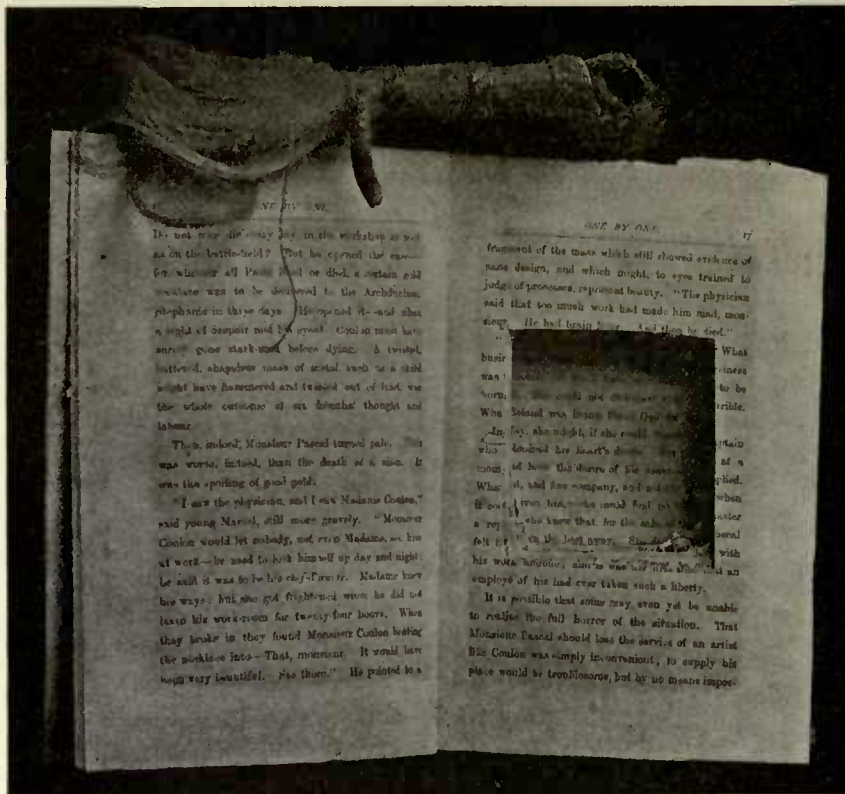 ONE BY ONE.
Do not men die every day in the workshop as well
as on the battle-field? But he opened the
for, whether all Paris lived or died, a certain gold
necklace was to be delivered to the Archduchess
Stéphanie in three days. He opened it—and what
a sight of despair met his eyes! Coulon must have
gone stark-mad before dying. A twisted,
battered, shapeless mass of metal, such as a child
might have hammered and twisted out of lead, was
the whole outcome of six months' thought and
labour.
Then, indeed, Monsieur Pascal turned pale. This
was worse, indeed, than the death of a man. It
was the spoiling of good gold.
"I saw the physician, and I saw Madame Coulon,"
said young Marcel, still more gravely. "Monsieur
Coulon would let nobody, not even Madame, see him
at work—he used to lock himself up day and night;
he said it was to be his chef-d'œuvre. Madame knew
his ways; but she got frightened when he did not
leave his work-room for twenty-four hours. When
they broke in they found Monsieur Coulon beating
the necklace into—That, monsieur. It would have
been very beautiful. See there." He pointed to a
ONE BY ONE. 17
fragment of the mass which still showed evidence of
sane design, and which might, to eyes trained to
judge of processes, represent beauty. "The physician
said that too much work had made him mad, mon-
sieur. He had brain fever. And then he died."
" What
busin iness
was to be
born, could not rrible.
Wha Isidore was
In joy, she might, if she could ptain
who desired his heart's
mom of have the dance of his at a
What st, and fine company, and plied.
it cou iron him, he could find when
a rep she knew that, for the
felt the best away. She with
his work was his an
employé of his had ever taken such a liberty.
It is possible that some may even yet be unable
to realise the full horror of the situation. That
Monsieur Pascal should lose the service of an artist
like Coulon was simply inconvenient, to supply his
place would be troublesome, but by no means impos-